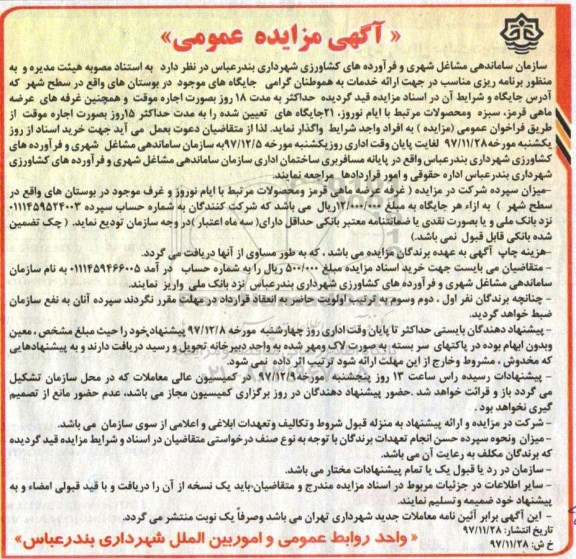 « آگهی مزایده عمومی »
سازمان ساماندهی مشاغل شهری و فرآورده های کشاورزی شهرداری بندرعباس در نظر دارد به استناد مصوبه هیئت مدیره و به
منظور برنامه ریزی مناسب در جهت ارائه خدمات به هموطنان گرامی جایگاه های موجود در بوستان های واقع در سطح شهر که
آدرس جایگاه و شرایط آن در اسناد مزایده قید گردیده حداکثر به مدت ۱۸ روز بصورت اجاره موقت و همچنین غرفه های عرضه
ماهی قرمز، سبزه ومحصولات مرتبط با ایام نوروز، ۲۱جایگاه های تعیین شده را به مدت حداکثر ۱۵روز بصورت اجاره موقت از
طریق فراخوان عمومی (مزایده ) به افراد واجد شرایط واگذار نماید. لذا از متقاضیان دعوت بعمل می آید جهت خرید اسناد از روز
یکشنبه مورخه ۹۷/۱۱/۲۸ لغایت پایان وقت اداری روزیکشنبه مورخه ۹۷/۱۲/۵به سازمان ساماندهی مشاغل شهری و فرآورده های
کشاورزی شهرداری بندرعباس واقع در پایانه مسافربری ساختمان اداری سازمان ساماندهی مشاغل شهری و فرآورده های کشاورزی
شهرداری بندرعباس اداره حقوقی و امور قراردادها مراجعه نمایند.
-میزان سپرده شرکت در مزایده ( غرفه عرضه ماهی قرمز و محصولات مرتبط با ایام نوروز و غرف موجود در بوستان های واقع در
سطح شهر ) به ازاء هر جایگاه به مبلغ ۱۲/۰۰۰/۰۰۰ریال می باشد که شرکت کنندگان به شماره حساب سپرده ۰۱۱۱۴۵۹۵۲۴۰۰۳
نزد بانک ملی و یا بصورت نقدی یا ضمانتنامه معتبر بانکی حداقل دارای( سه ماه اعتبار )در وجه سازمان تودیع نماید. ( چک تضمین
شده بانکی قابل قبول نمی باشد.)
-هزینه چاپ آگهی به عهده برندگان مزایده می باشد ، که به طور مساوی از آنها دریافت می گردد.
- متقاضیان می بایست جهت خرید اسناد مزایده مبلغ ۵۰۰/۰۰۰ ریال را به شماره حساب در آمد ۰۱۱۱۴۵۹۴۶۶۰۰۵ به نام سازمان
ساماندهی مشاغل شهری و فرآورده های کشاورزی شهرداری بندرعباس نزد بانک ملی واریز نمایند.
- چنانچه برندگان نفر اول ، دوم وسوم به ترتیب اولویت حاضر به انعقاد قرارداد در مهلت مقرر نگردند سپرده آنان به نفع سازمان
ضبط خواهد گردید.
- پیشنهاد دهندگان بایستی حداکثر تا پایان وقت اداری روز چهارشنبه مورخه ۹۷/۱۲/۸ پیشنهاد خود را حیث مبلغ مشخص ، معین
وبدون ابهام بوده در پاکتهای سر بسته به صورت لاک ومهر شده به واحد دبیرخانه تحویل و رسید دریافت دارند و به پیشنهادهایی
که مخدوش ، مشروط وخارج از این مهلت ارائه شود ترتیب اثر داده نمی شود.
- پیشنهادات رسیده راس ساعت ۱۳ روز پنجشنبه مورخه ۹۷/۱۲/۹ در کمیسیون عالی معاملات که در محل سازمان تشکیل
می گردد باز و قرائت خواهد شد .حضور پیشنهاد دهندگان در روز برگزاری کمیسیون مجاز می باشد، عدم حضور مانع از تصمیم
گیری نخواهد بود .
- شرکت در مزایده و ارائه پیشنهاد به منزله قبول شروط و تکالیف وتعهدات ابلاغی و اعلامی از سوی سازمان می باشد.
-میزان ونحوه سپرده حسن انجام تعهدات برندگان با توجه به نوع صنف درخواستی متقاضیان در اسناد و شرایط مزایده قید گردیده
که برندگان مکلف به رعایت آن می باشد.
- سازمان در رد یا قبول یک یا تمام پیشنهادات مختار می باشد.
- سایر اطلاعات در جزئیات مربوط در اسناد مزایده مندرج و متقاضیان باید یک نسخه از آن را دریافت و با قید قبولی امضاء و به
پیشنهاد خود ضمیمه وتسلیم نمایند.
- این آگهی برابر آئین نامه معاملات جدید شهرداری تهران می باشد وصرفاً یک نوبت منتشر می گردد.
تاریخ انتشار: ۹۷/۱۱/۲۸
خ ش: ۹۷/۱۱/۲۸
« واحد روابط عمومی و اموربین الملل شهرداری بندرعباس »